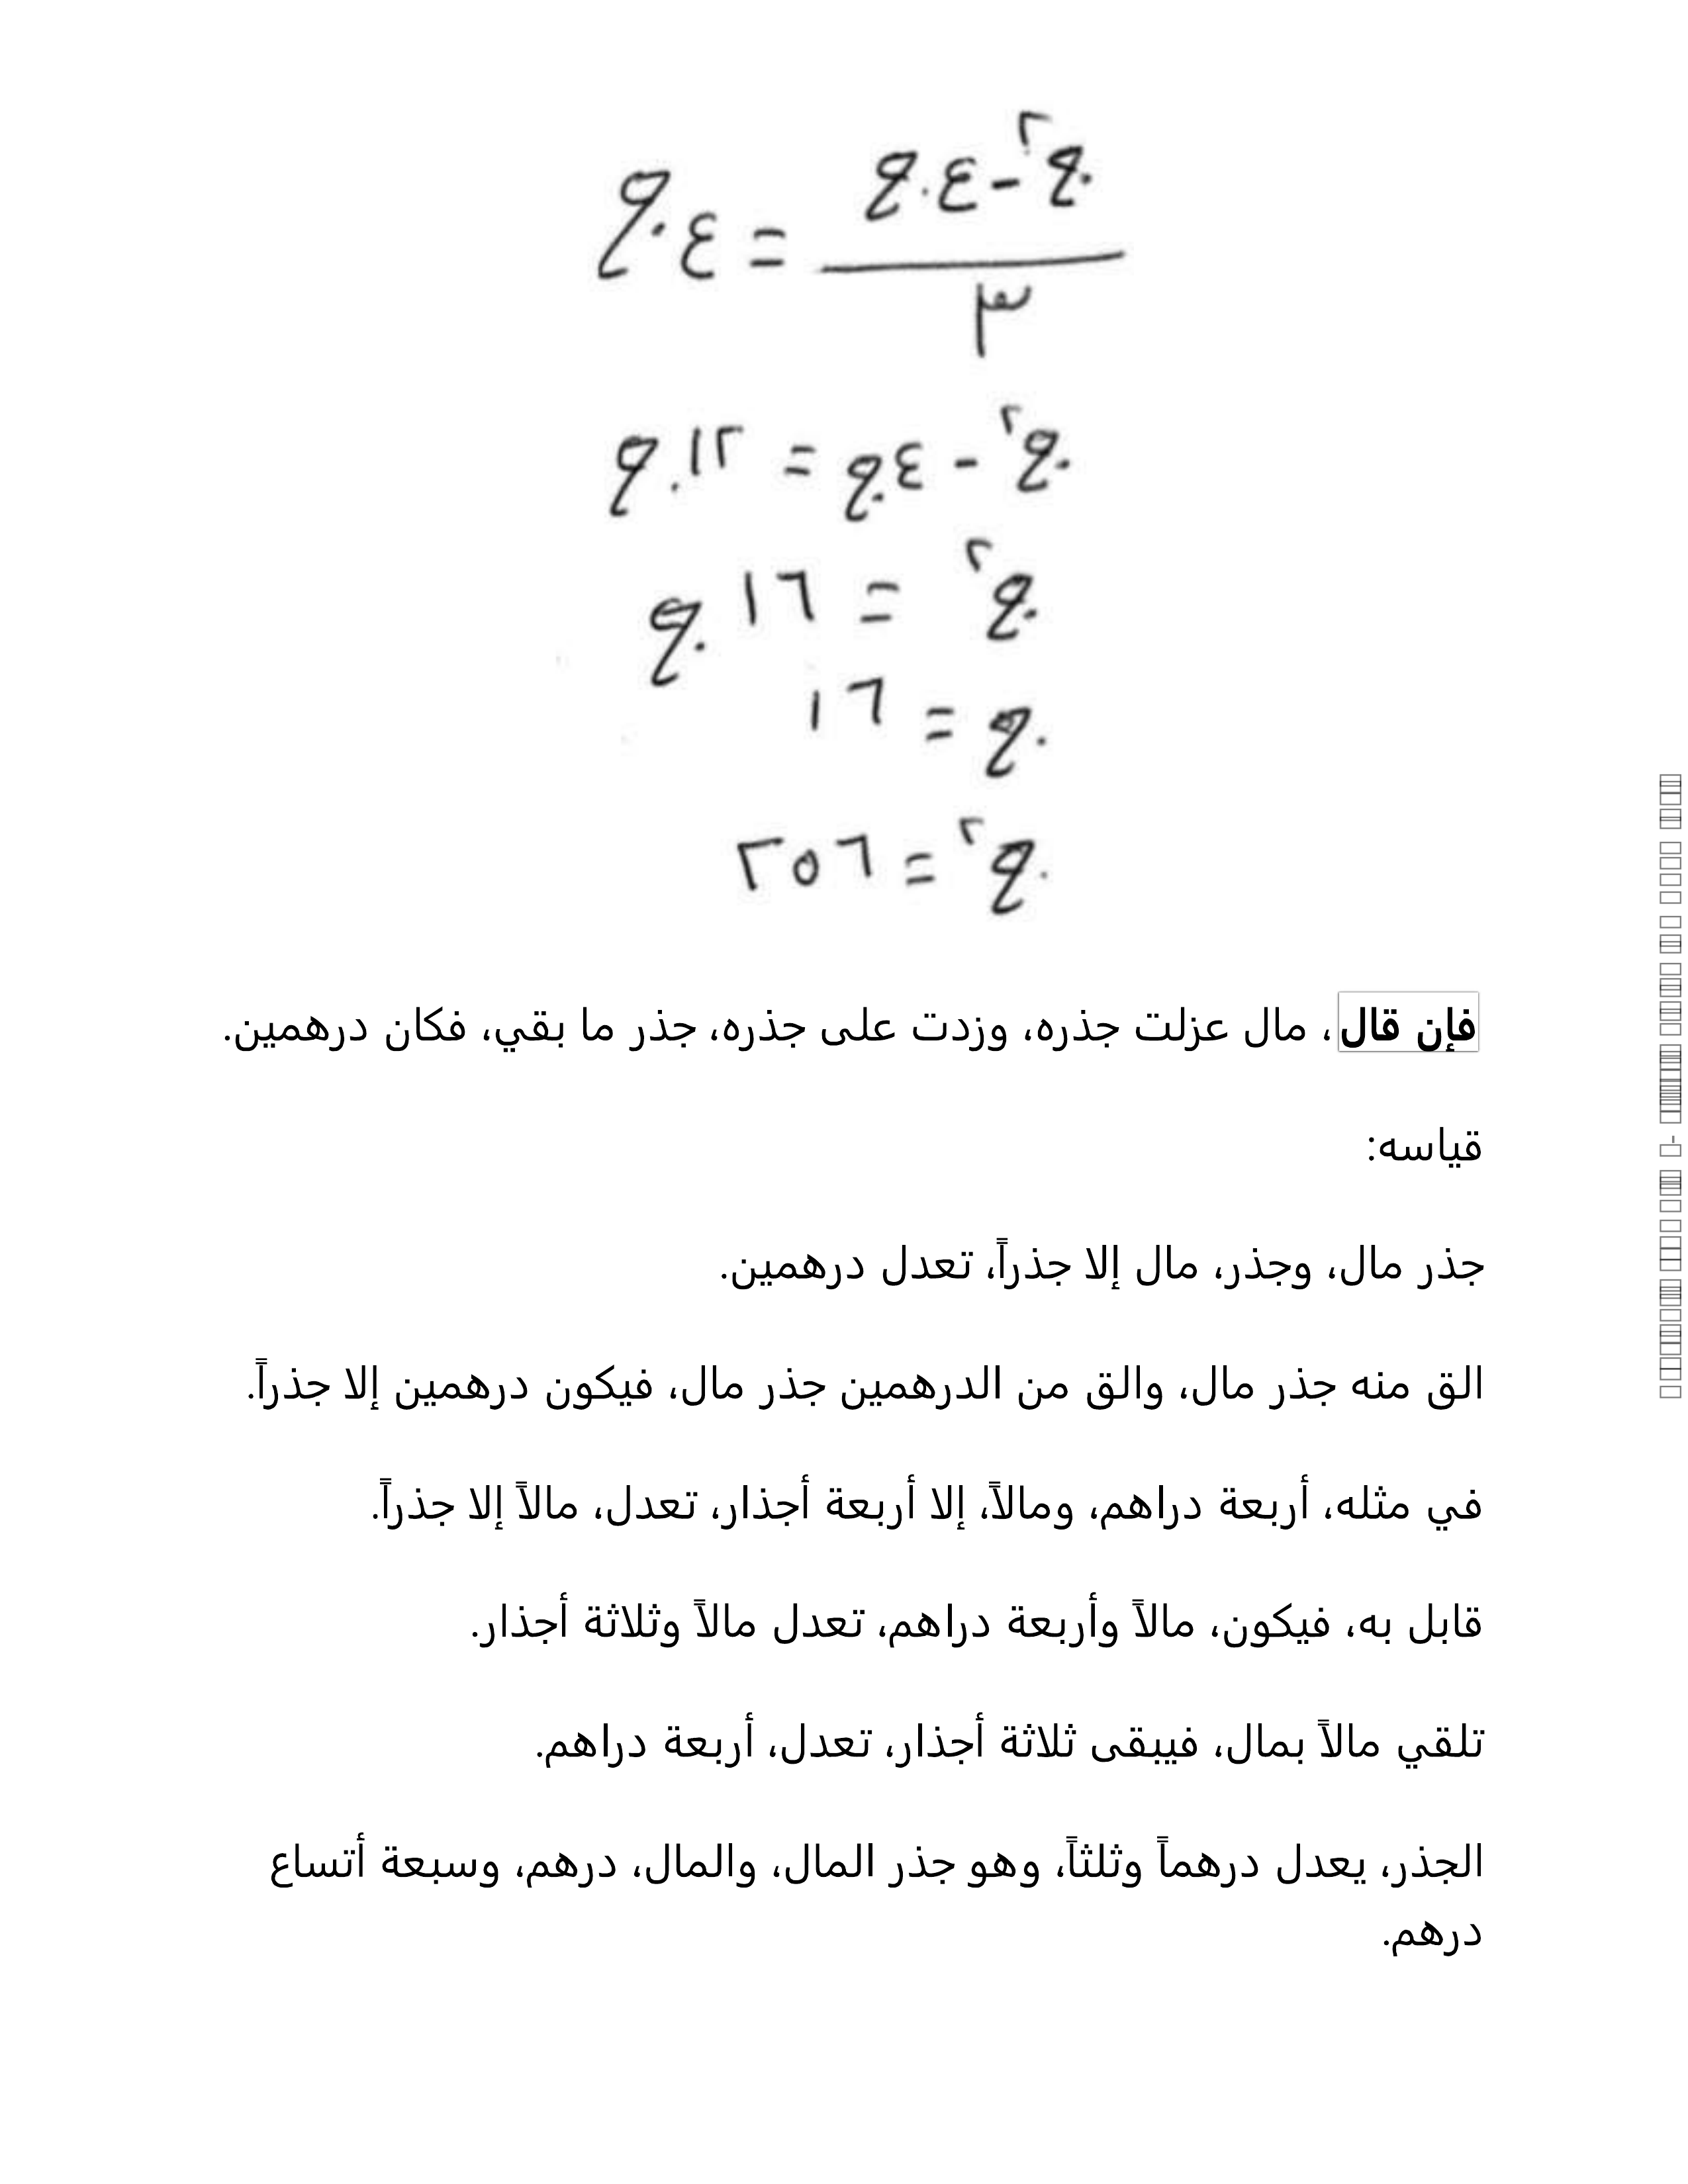 ج٢ - ٤ج / ٣ = ٤ج
ج٢ - ٤ج = ١٢ج
ج٢ = ١٦ج
ج = ١٦
ج٢ = ٢٥٦
فإن قال، مال عزلت جذره، وزدت على جذره، جذر ما بقي، فكان درهمين.
قياسه:
جذر مال، وجذر، مال إلا جذراً، تعدل درهمين.
الق منه جذر مال، والق من الدرهمين جذر مال، فيكون درهمين إلا جذراً.
في مثله، أربعة دراهم، ومالاً، إلا أربعة أجذار، تعدل، مالاً إلا جذراً.
قابل به، فيكون، مالاً وأربعة دراهم، تعدل مالاً وثلاثة أجذار.
تلقي مالاً بمال، فيبقى ثلاثة أجذار، تعدل، أربعة دراهم.
الجذر، يعدل درهماً وثلثاً، وهو جذر المال، والمال، درهم، وسبعة أتساع
درهم.